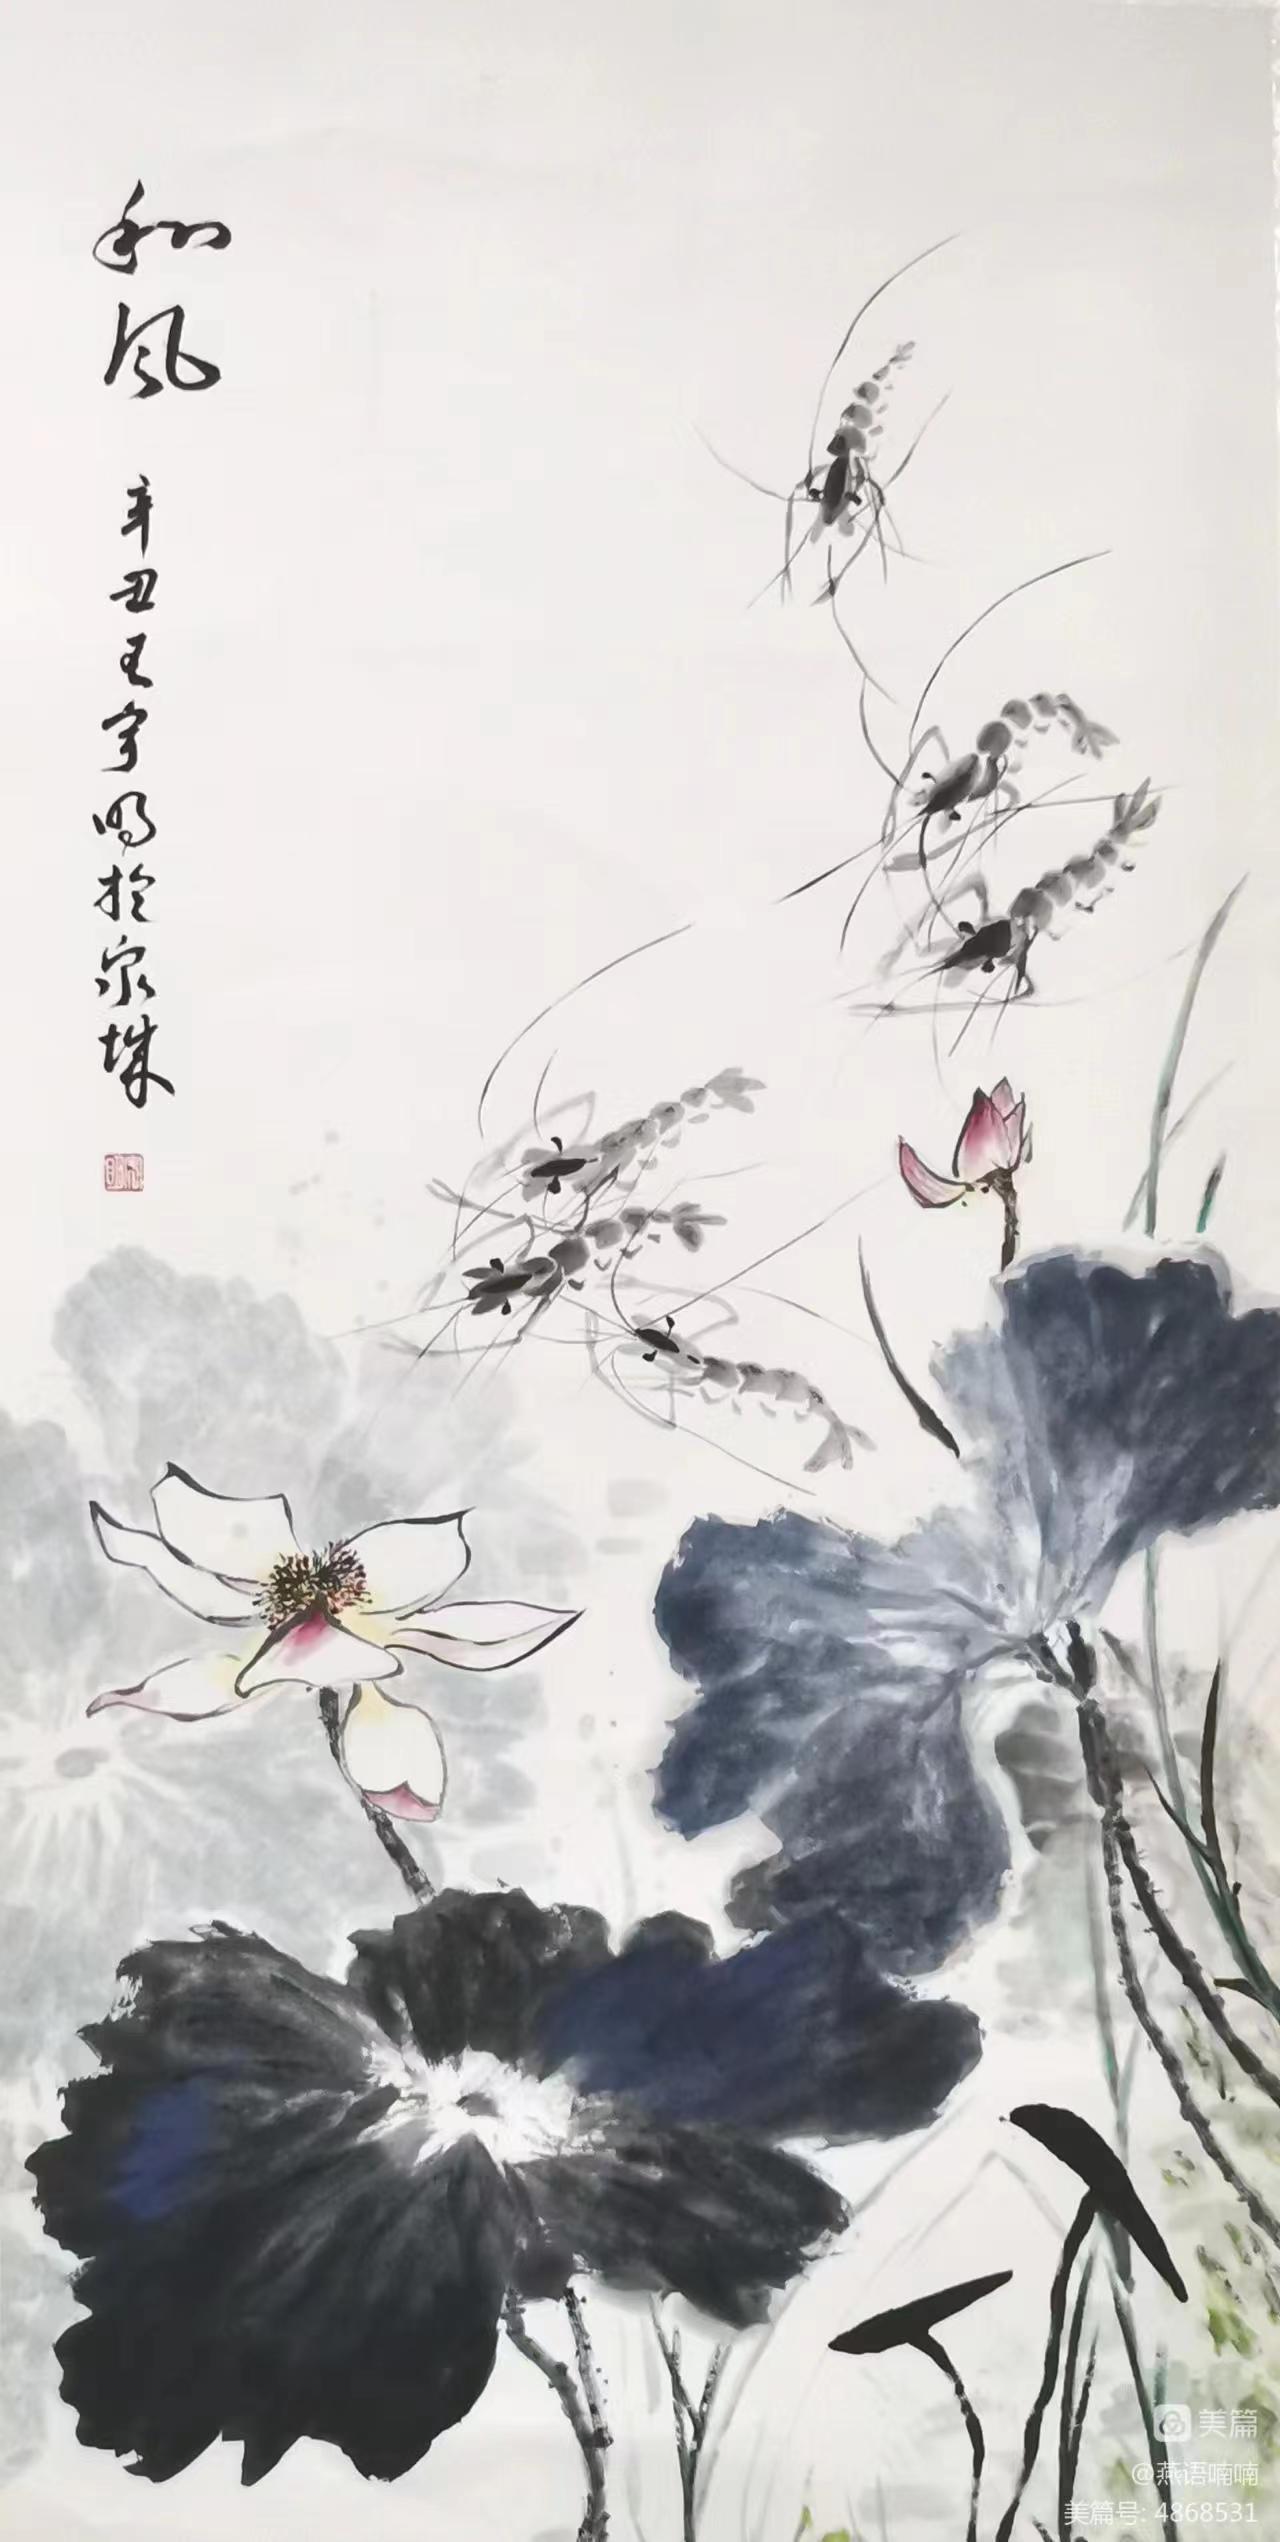 和风
辛丑王宇明於泉城
美篇
@燕语喃喃
美篇号: 4868531